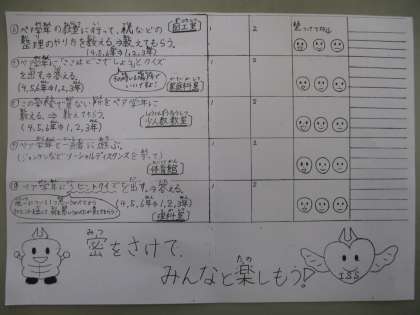 ⑥ペア学年の教室に行って、机などの
整理のやり方を教える。⇒教えてもらう。
(4,5,6年→1,2,3年)
図工室
1 2
⑦ペア学年に「ここはどこでしょう」クイズ
を出す。⇒答える。
(4,5,6年→1,2,3年)
家庭科室
1 2
⑧
教える。⇒教えてもらう。
(4,5,6年→1,2,3年)
少人数教室
1 2
⑨ペア学年で一緒に遊ぶ。
(ジャンケンなどソーシャルディスタンスを守って)
体育館
1 2
⑩ペア学年に3ヒントクイズを出す。⇒答える。
(4,5,6年→1,2,3年)
理科室
1 2
みつ
密をさけて、
たの
みんなと楽しもう!
ISS